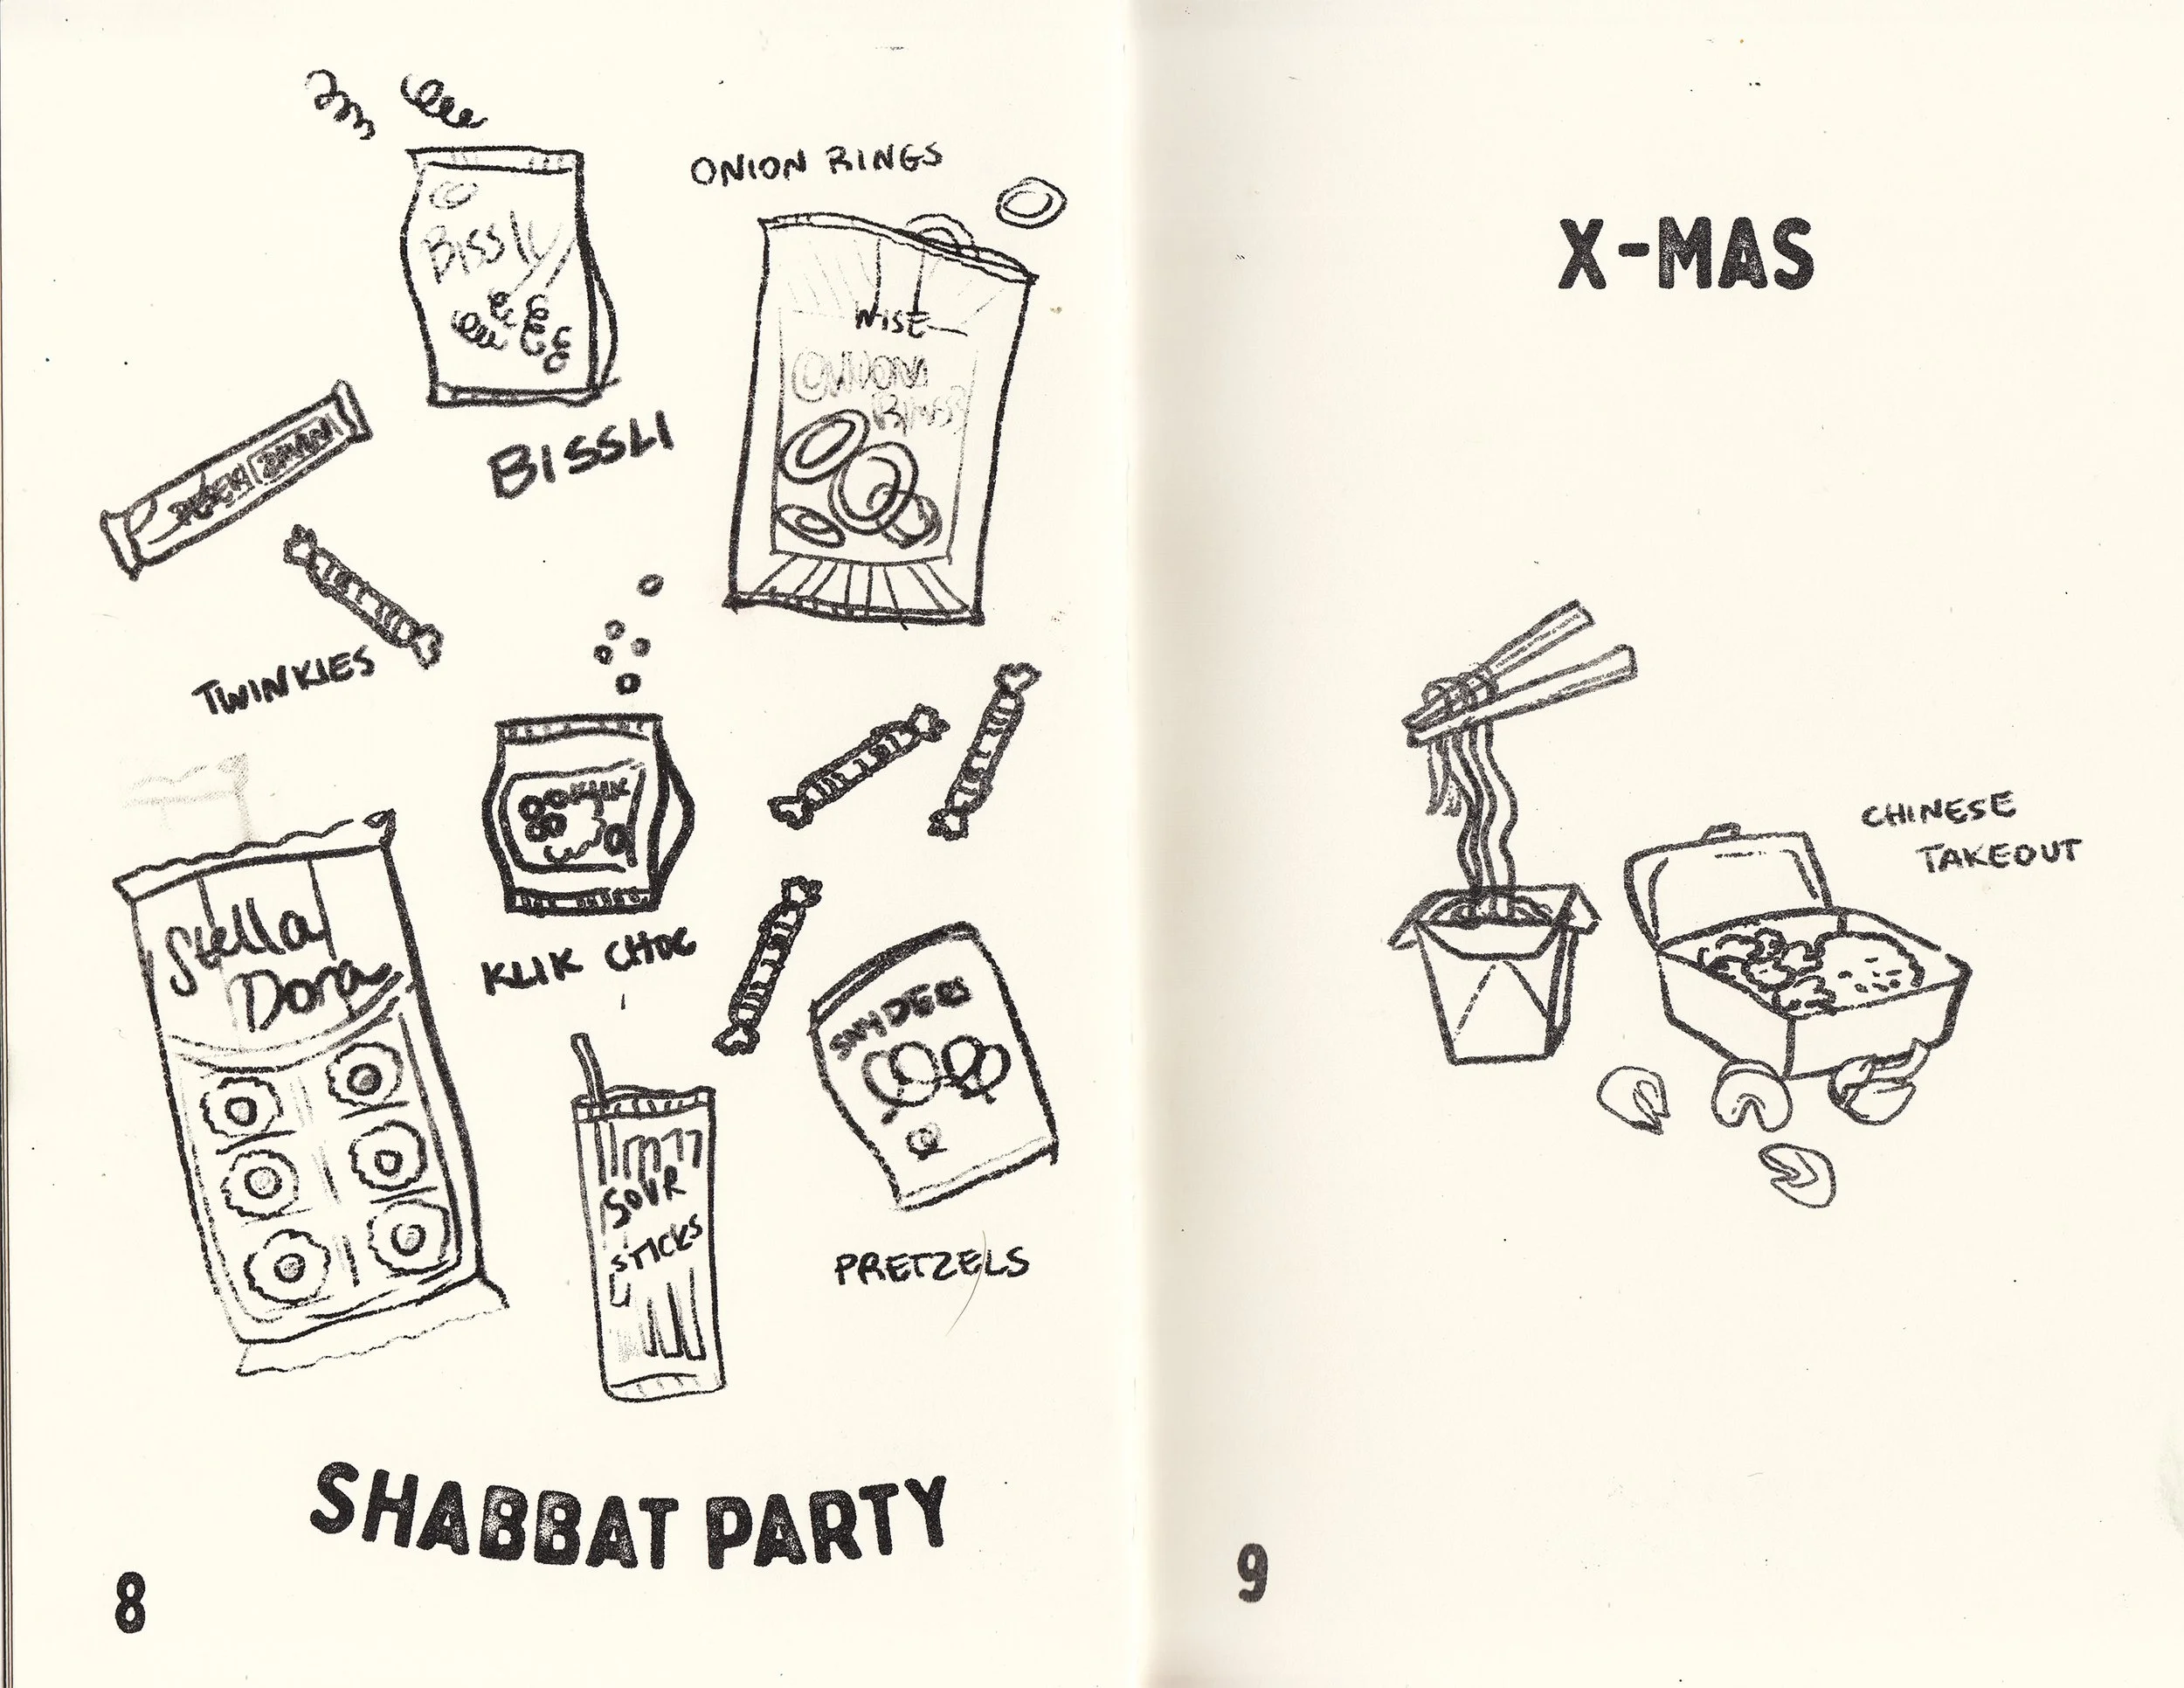 ONION RINGS
BISSLY
WISE
ONION
RINGS
BISSLI
PESEK ZMAN
TWINKIES
KLIK
KLIK CHOC
Stella
Dora
SNYDERS
SOUR
STICKS
PRETZELS
SHABBAT PARTY
8
X-MAS
CHINESE
TAKEOUT
9